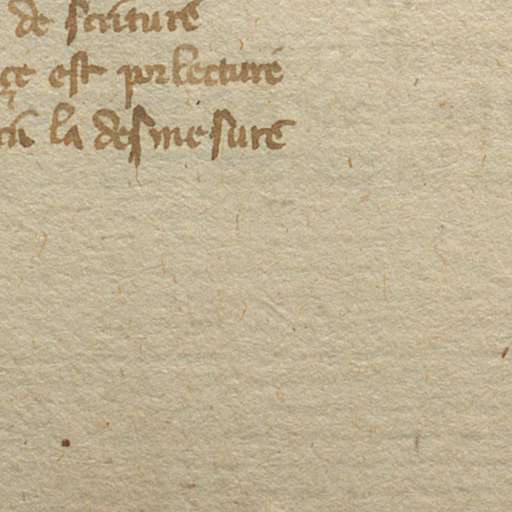 de scriture
çe est por lecture
la desmesure